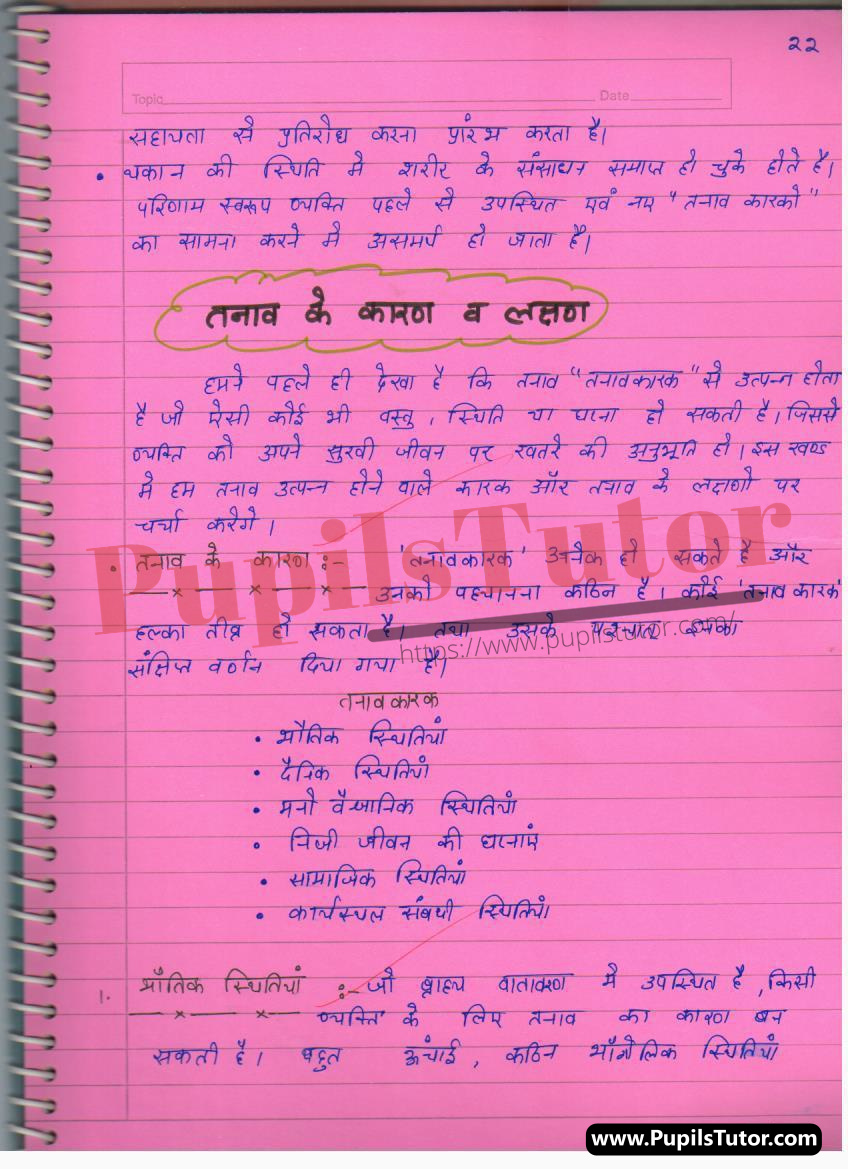 २२
Topic Date
सहायता से प्रतिरोध करना प्रारंभ करता है।
• थकान की स्थिति मे शरीर के संसाधन समाप्त हो चुके होते है।
परिणाम स्वरूप व्यक्ति पहले से उपस्थित एवं नए "तनाव कारको"
का सामना करने मे असमर्थ हो जाता है।
तनाव के कारण व लक्षण
हमने पहले ही देखा है कि तनाव "तनावकारक" से उत्पन्न होता
है जो ऐसी कोई भी वस्तु, स्थिति या घटना हो सकती है। जिससे
व्यक्ति को अपने सुखी जीवन पर खतरे की अनुभूति हो। इस खण्ड
मे हम तनाव उत्पन्न होने वाले कारक और तनाव के लक्षणो पर
चर्चा करेगे।
• तनाव के कारण :- 'तनावकारक' अनेक हो सकते है और
उनको पहचानना कठिन है। कोई 'तनाव कारक'
हल्का तीव्र हो सकता है। तथा उसके पश्चात इनका
संक्षिप्त वर्णन दिया गया है।
PupilsTutor
https://www.pupilstutor.com/
तनावकारक
• भौतिक स्थितियां
• दैनिक स्थितियां
• मनो वैज्ञानिक स्थितियां
• निजी जीवन की घटनाएं
• सामाजिक स्थितियां
• कार्यस्थल संबधी स्थितियां
1. भौतिक स्थितियां :- जो बाह्य वातावरण मे उपस्थित है, किसी
व्यक्ति के लिए तनाव का कारण बन
सकती है। बहुत ऊंचाई, कठिन भौगोलिक स्थितियां
www.PupilsTutor.com